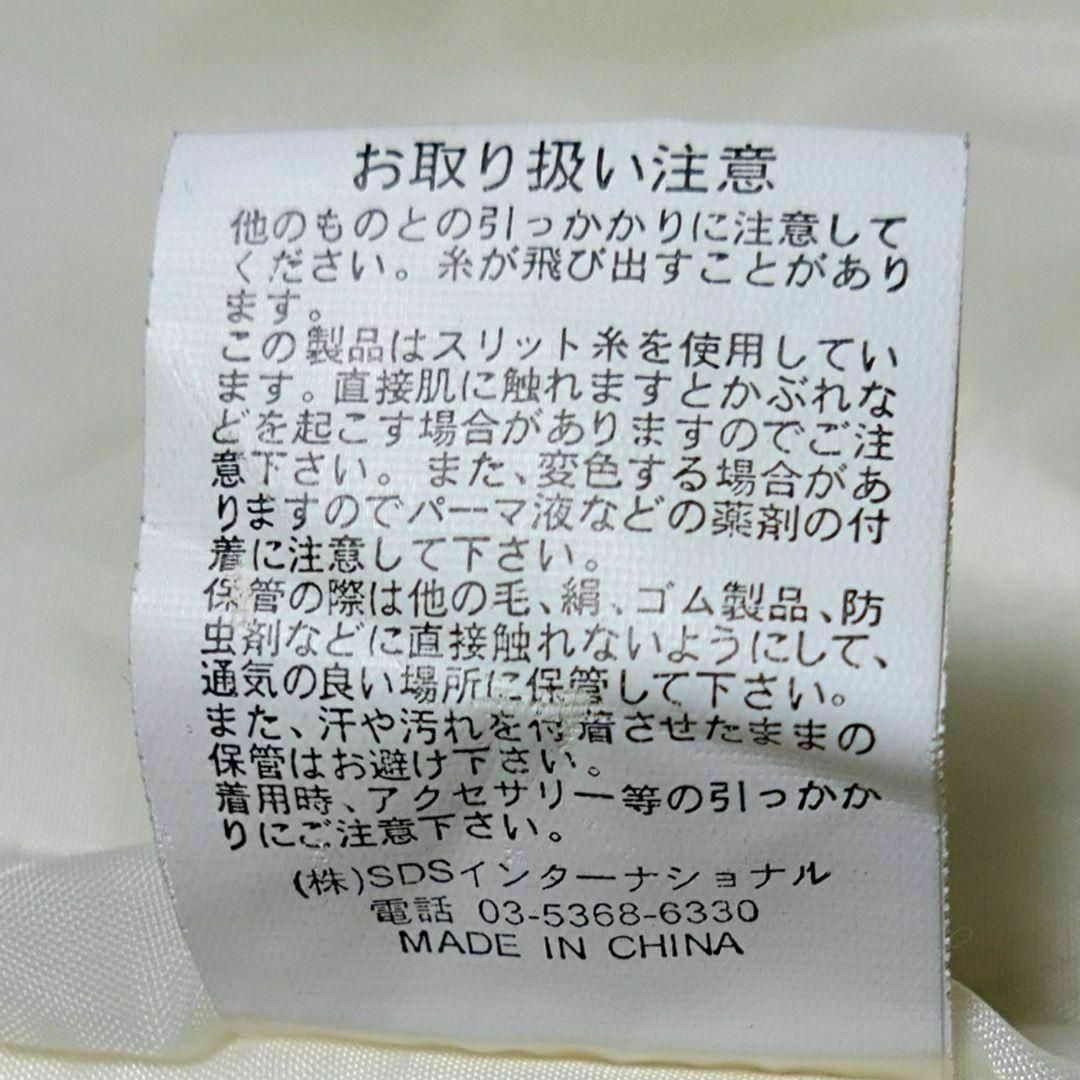 お取り扱い注意
他のものとの引っかかりに注意して
ください。糸が飛び出すことがあり
ます。
この製品はスリット糸を使用してい
ます。直接肌に触れますとかぶれな
どを起こす場合がありますのでご注
意下さい。また、変色する場合があ
りますのでパーマ液などの薬剤の付
着に注意して下さい。
保管の際は他の毛、絹、ゴム製品、防
虫剤などに直接触れないようにして、
通気の良い場所に保管して下さい。
また、汗や汚れを付着させたままの
保管はお避け下さい。
着用時、アクセサリー等の引っかか
りにご注意下さい。
(株)SDSインターナショナル
電話 03-5368-6330
MADE IN CHINA